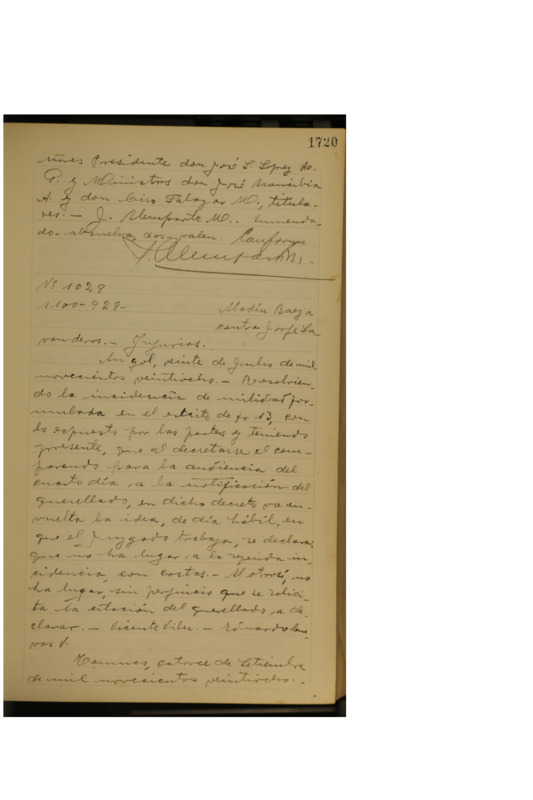 1720
ñores Presidente don José L López Ro.
P. y Ministros don José
A. y don Ciro Salazar M., titula-
res. — J. M.. enmenda-
do - absuelva, dos - valen. Conforme

Nº 1029
1100-928-
Medín Baeza
contra Jorge La-
vanderos. — Injurias.
Angol, veinte de Julio de mil
novecientos veintiocho. — Resolvien-
do la incidencia de nulidad for-
mulada en el escrito de fs 13, con
lo expuesto por las partes y teniendo
presente, que al decretarse el com-
parendo para la audiencia del
cuarto día a la notificación del
querellado, en dicho decreto va en-
vuelta la idea, de día hábil, en
que el Juzgado trabaja, se declara:
que no ha lugar a la referida in-
cidencia, con costas. — Al otrosí, no
ha lugar, sin perjuicio que se solici-
ta la citación del querellado a de-
clarar. — Vicente — Eduardo Cue-
vas V.
Temuco, catorce de Setiembre
de mil novecientos veintiocho. -